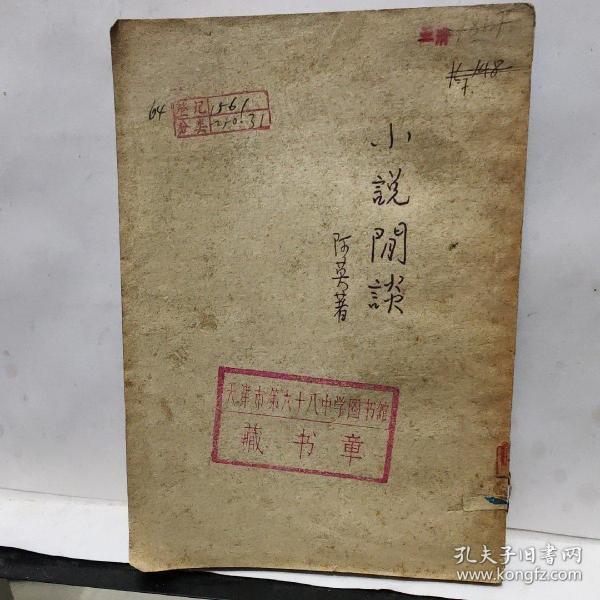 三清
64
登记 1561
分类 210.31
小說閒談
阿英著
天津市第六十八中学图书館
藏书章
孔夫子旧书网
www.kongfz.com